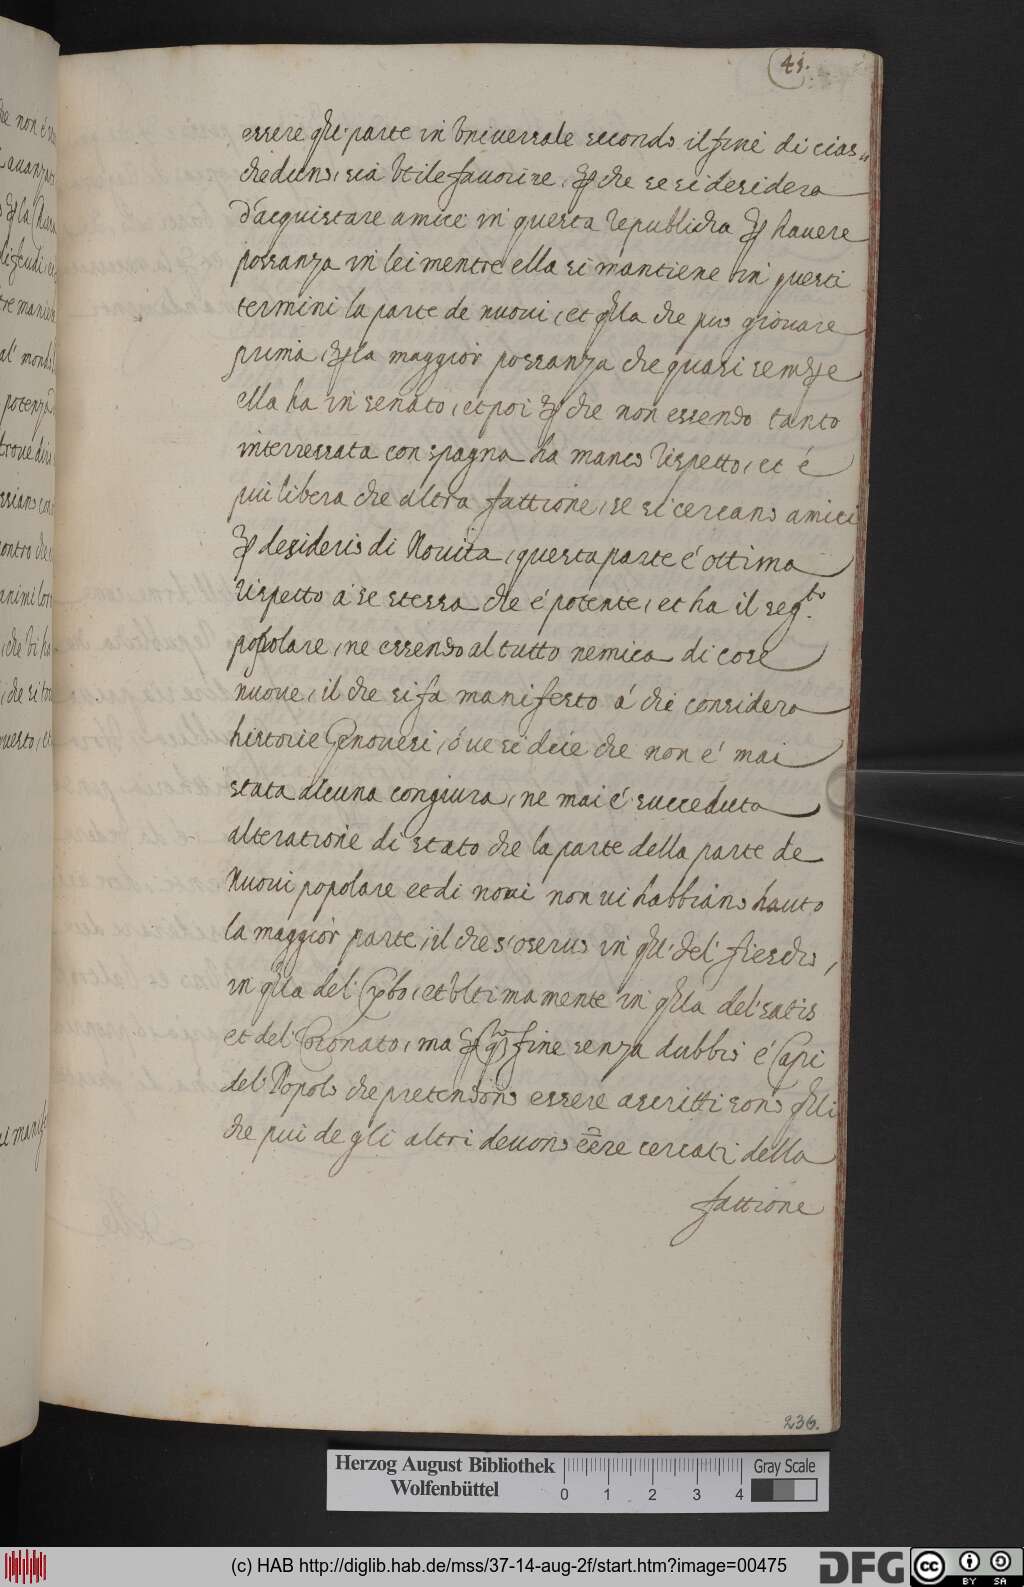 41.
essere qlla parte in Universale secondo il fine di cias-
cheduno, sia Utile favorire, per che se si desidera
d'acquistare amici in questa republicha per havere
possanza in lei mentre ella si mantiene in questi
termini la parte de nuovi, et qlla che puo giovare
prima, per la maggior possanza che quasi sempre
ella ha in senato, et poi per che non essendo tanto
interressata con spagna ha manco rispetto, et é
piu libera che altra fattione, se si cercano amici
per desiderio di Novita, questa parte é ottima
rispetto á se stessa che é potente, et ha il seg.to
popolare, ne essendo al tutto nemica di cose
nuove, il che si fa manifesto á chi considera
historie Genovesi, óve si dcie che non é mai
stata alcuna congiura, ne mai é succeduta
alteratione di stato che la parte della parte de
Nuovi popolare et di novi non vi habbiano hauto
la maggior parte, il che s'oservo in qlla del fiescho,
in qlla del Cybo, et Ultimamente in qlla del
et del Coronato, ma per fine senza dubbio é Capi
del Popolo che pretendono essere ascritti sono qlli
che piu de gli altri devono eēre cercati della
fattione
236.
Herzog August Bibliothek
Wolfenbüttel
0 1 2 3 4
Gray Scale
(c) HAB http://diglib.hab.de/mss/37-14-aug-2f/start.htm?image=00475
DFG
cc BY SA